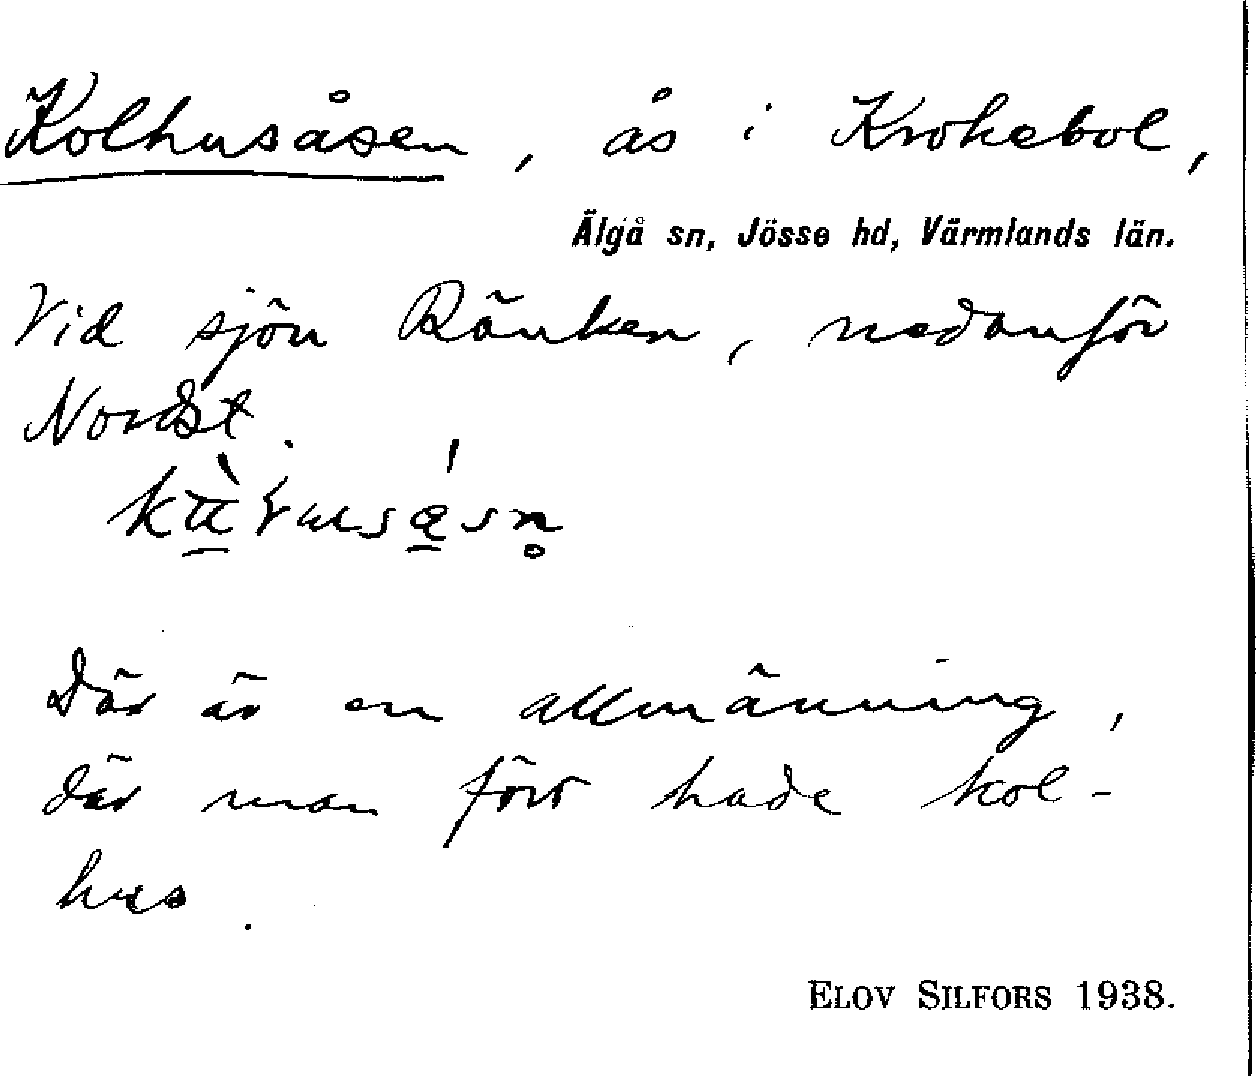 Kolhusåsen, ås i Krokebol,
Älgå sn, Jösse hd, Värmlands län.
Vid sjön Ränken, nedanför
Nordst.
Där är en allmänning,
där man förr hade kol-
hus.
ELOV SILFORS 1938.